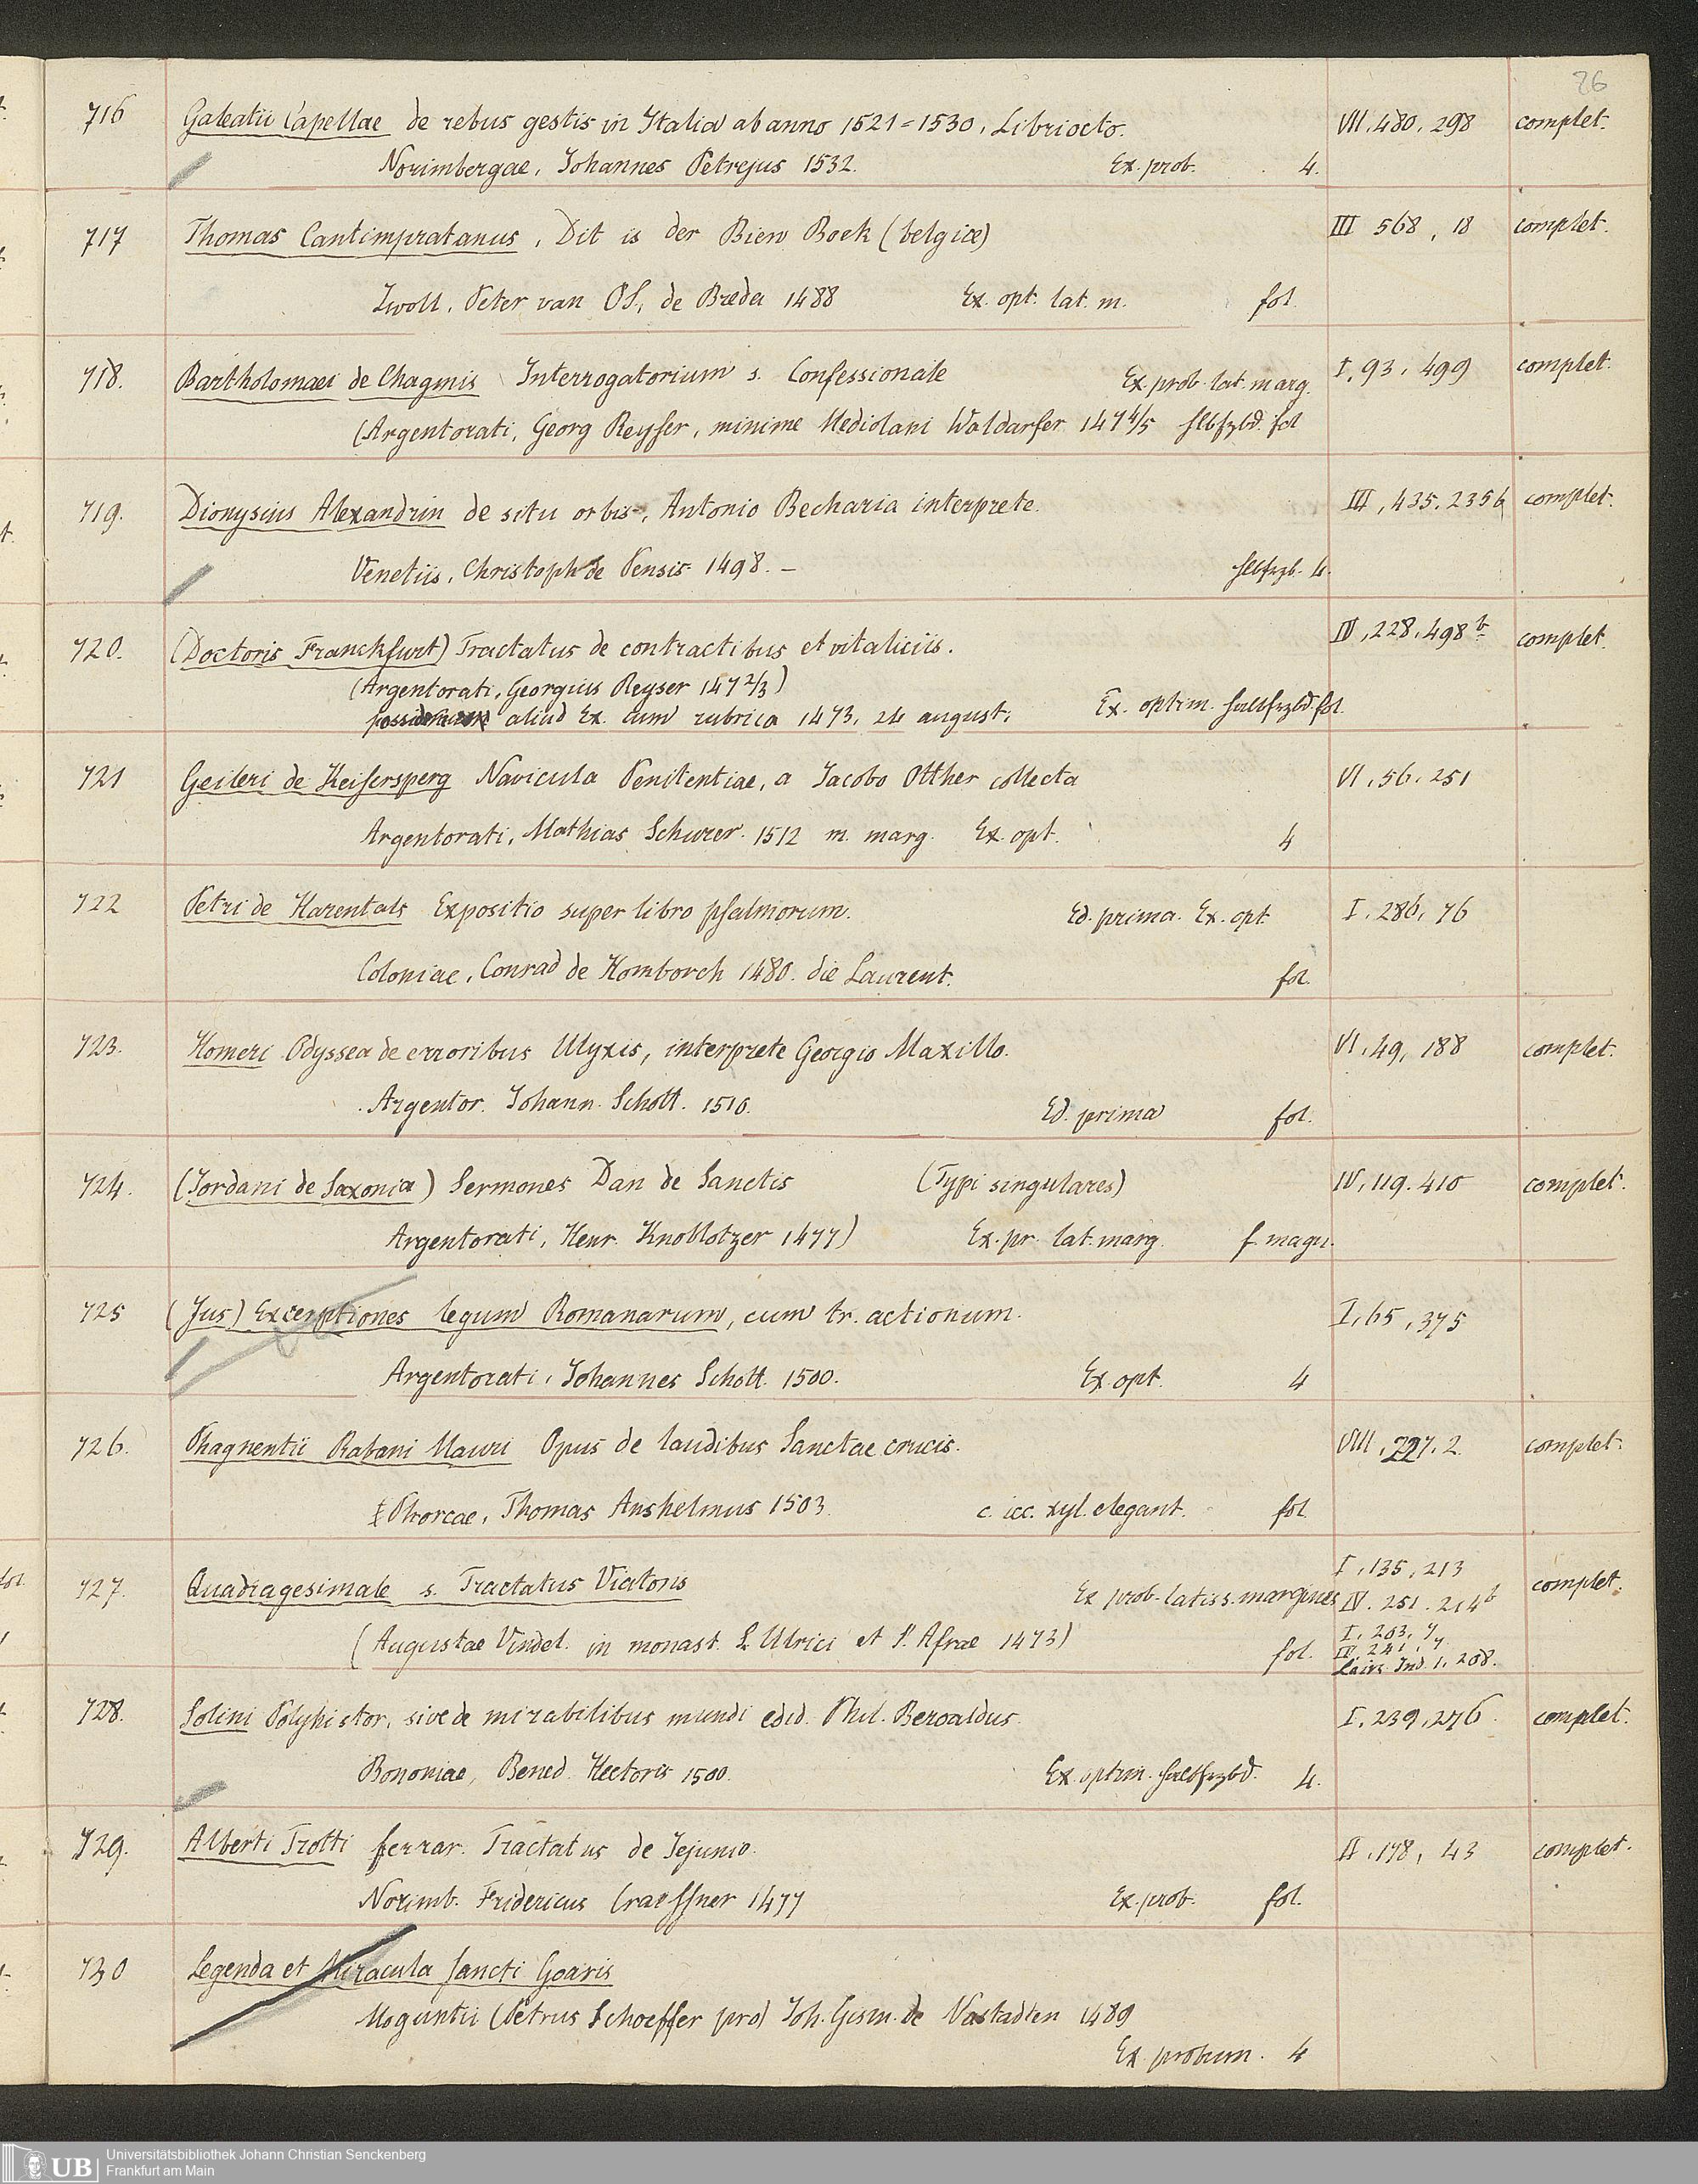 26
716 Galeatii Capellae de rebus gestis in Italia ab anno 1521=1530, Libri octo. VII, 480, 298 complet.
Norimbergae, Johannes Petrejus 1532. Ex. prob. 4.
717 Thomas Cantimpratanus, Dit is der Bien Boek (belgice) III 568, 18 complet.
Zwoll, Peter van OS, de Breda 1488 Ex. opt. lat. m. fol
718. Bartholomaei de Chagmis Interrogatorium s. Confessionale Ex prob. lat. marg. I, 93, 499 complet.
(Argentorati, Georg Reyser, minime Mediolani Waldarfer 1474/5 hlbfzbd. fol
719. Dionysius Alexandrin de situ orbis, Antonio Becharia interprete. III, 435. 2356 complet.
Venetiis, Christoph de Pensis 1498. – hlbfrzb. 4.
720. (Doctoris Franckfurt) Tractatus de contractibus et vitaliciis. IV, 228, 498 b complet.
(Argentorati, Georgius Reyser 1472/3)
aliud Ex. cum rubrica 1473, 24 august. Ex. optim. halbfrzbd. fol.
721 Geileri de Keisersperg Navicula Penitentiae, a Jacobo Otther collecta VI, 56. 251
Argentorati, Mathias Schurer. 1512 m. marg. Ex. opt. 4
722 Petri de Harentals Expositio super libro psalmorum. Ed. prima. Ex. opt. I. 286, 76
Coloniae, Conrad de Homborch 1480. die Laurent. fol.
723. Homeri Odyssea de erroribus Ulyxis, interprete Georgio Maxillo. VI, 49, 188 complet.
Argentor. Johann. Schott. 1510. Ed. prima fol.
724. (Jordani de Saxonia) Sermones Dan de Sanctis (Typi singulares) IV, 119. 410 complet.
Argentorati, Henr. Knoblotzer 1477) Ex. pr. lat. marg. f. magn.
725 (Jus) Excerptiones legum Romanarum, cum tr. actionum. I, 65, 375
Argentorati, Johannes Schott. 1500. Ex. opt. 4
726. Phagnentii Rabani Mauri Opus de laudibus Sanctae crucis. VIII, 227. 2. complet.
Phorcae, Thomas Anshelmus 1503. c. icc. xyl. elegant. fol.
727. Quadragesimale s. Tractatus Viatoris Ex prob. latiss. margines I, 135, 213 complet.
IV. 251. 214 b
(Augustae Vindel. in monast. S. Ulrici et S. Afrae 1473) fol. I, 203, 7
IV, 241, 7
Laire Ind. I, 208.
728. Solini Polyhistor, sive de mirabilibus mundi edid. Phil. Beroaldus. I, 239, 276. complet.
Bononiae, Bened. Hectoris 1500. Ex. optim. halbfrzbd. 4.
729. Alberti Trotti ferrar. Tractatus de Jejunio. II, 178, 43 complet.
Norimb. Fridericus Craeffner 1477 Ex. prob. fol.
730 Legenda et Miracula Sancti Goaris
Moguntii (Petrus Schoeffer pro) Joh. Gism. de Nastadten 1489
Ex probum. 4
UB Universitätsbibliothek Johann Christian Senckenberg
Frankfurt am Main